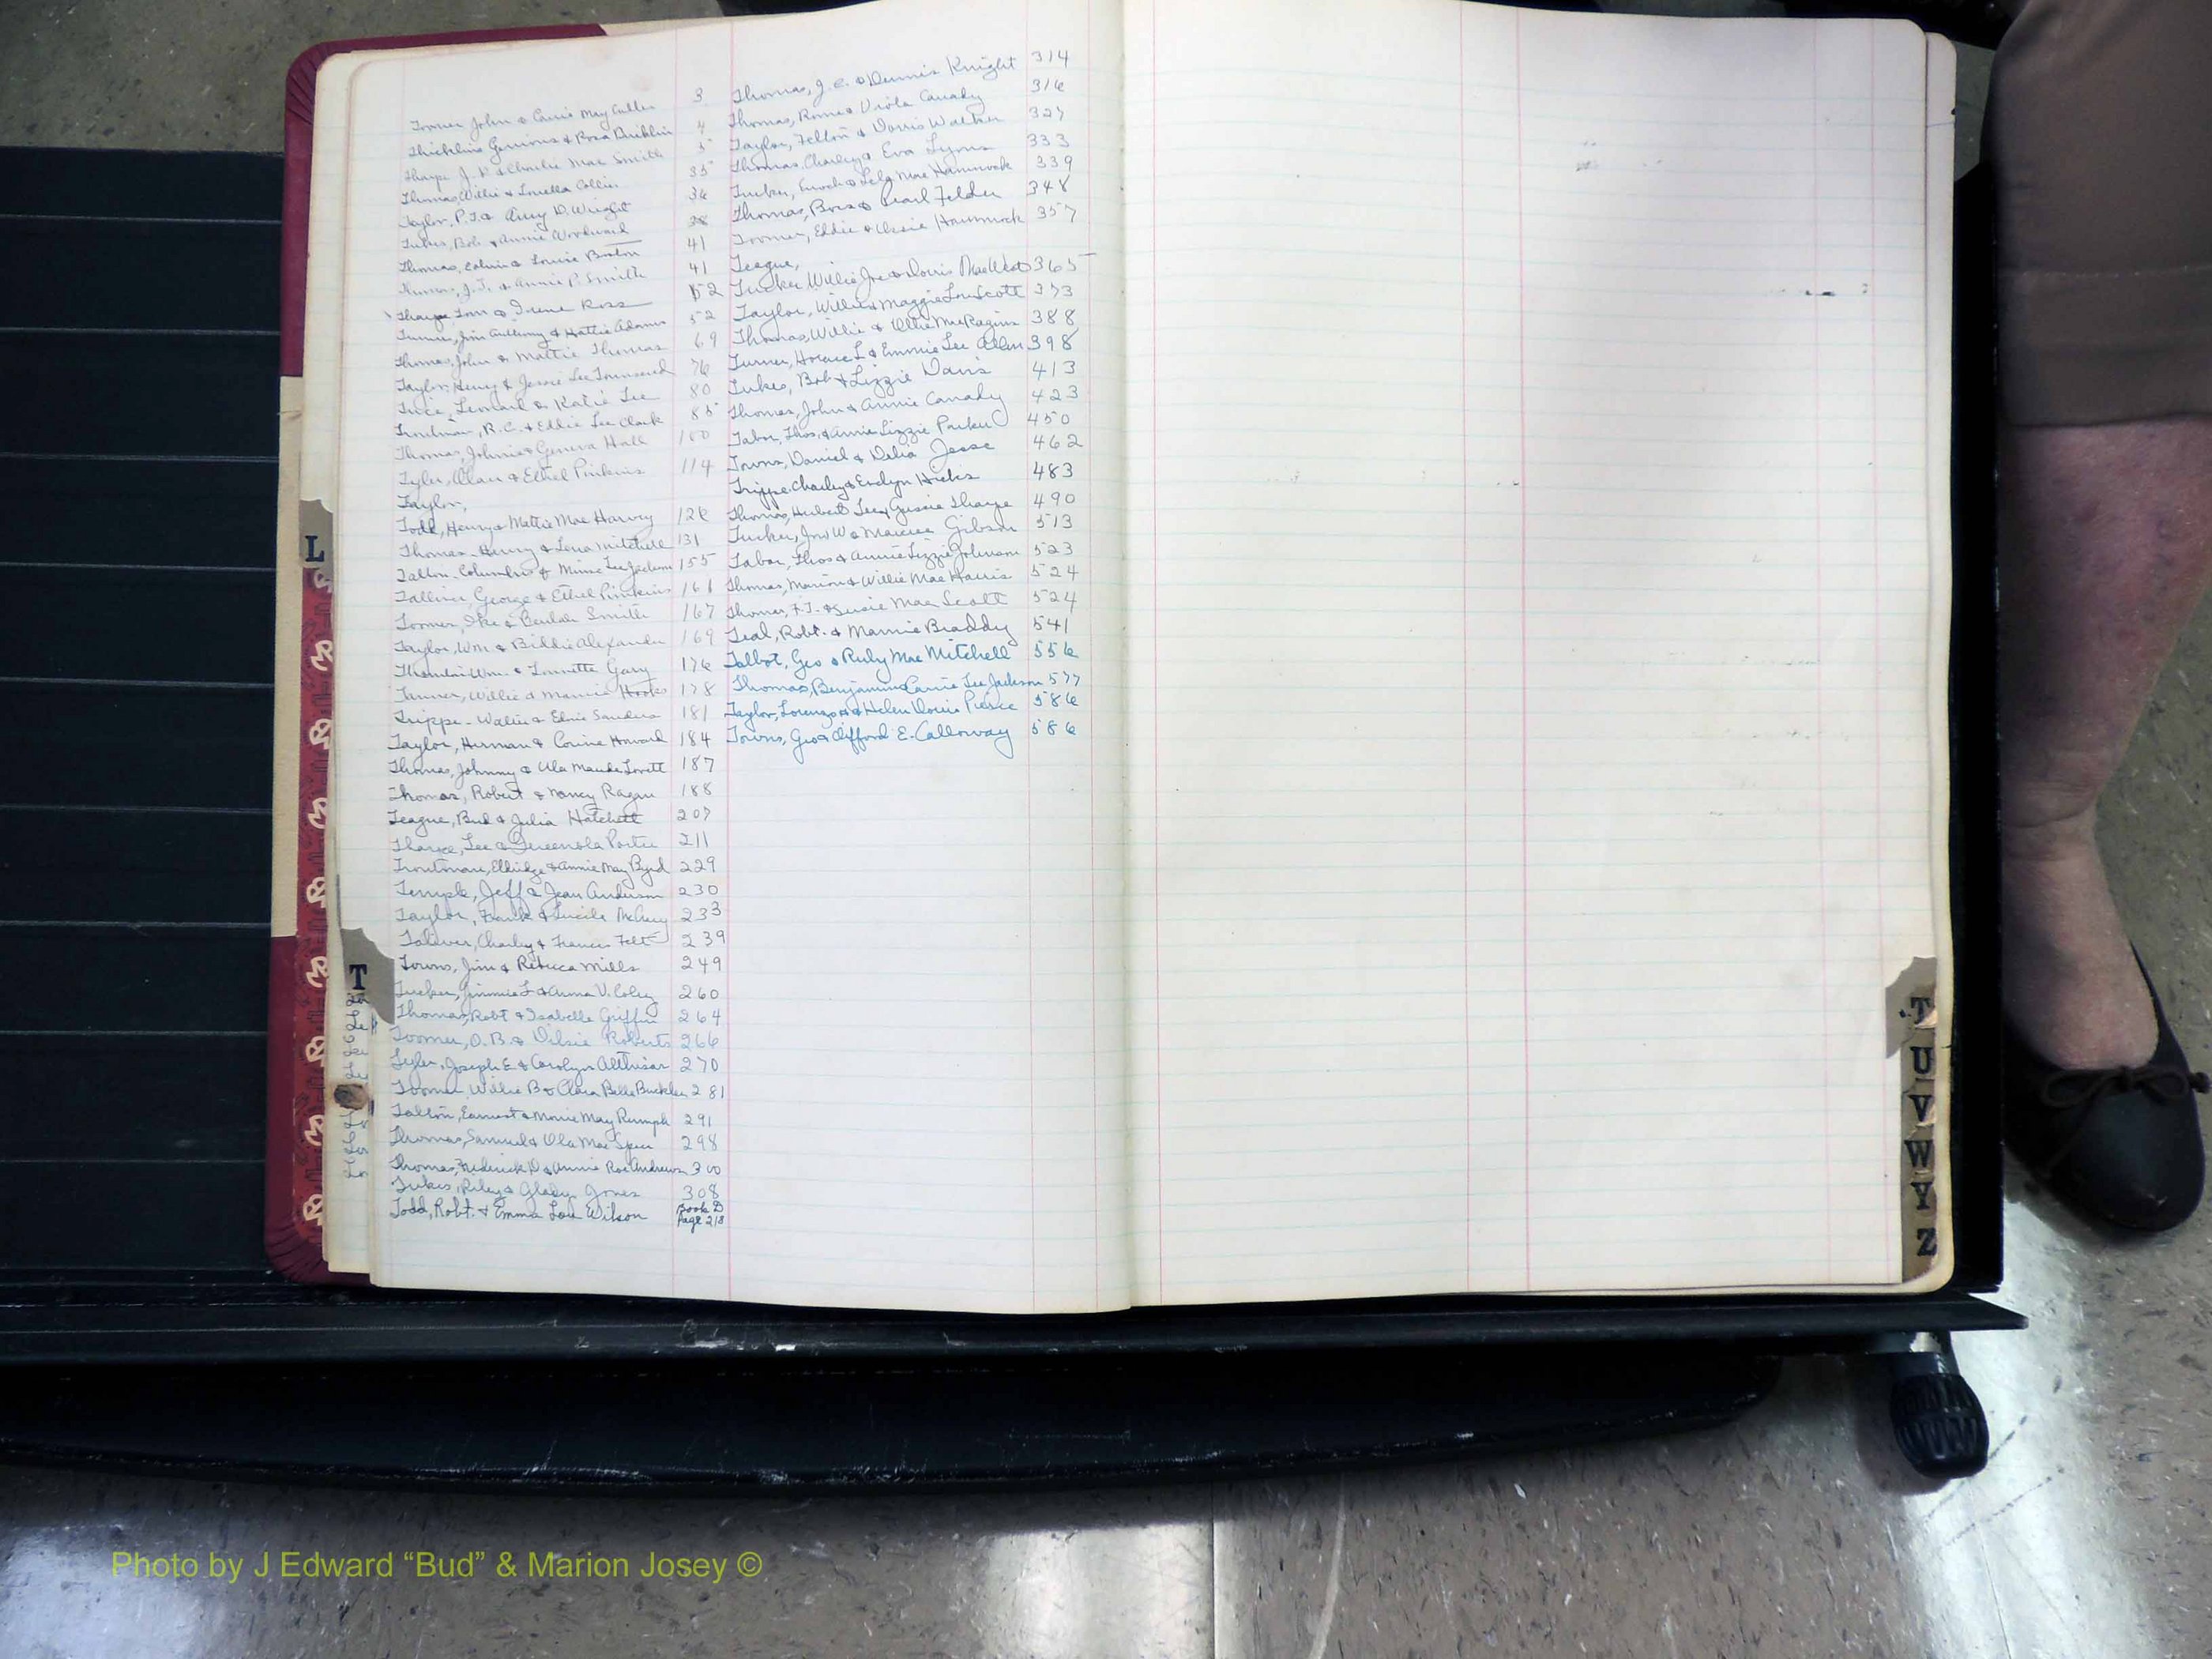 Toomer John & Carrie May Culler 3
& Rosa 4
Tharpe J. P. & Charlie Mae Smith 5
Thomas, Willie & Louella Collier 35
Taylor, P. T. & Amy D. Wright 36
Tukes, Bob & Annie Woodward 38
Thomas, Edwin & Louise Boston 41
Thomas, J. T. & Annie P. Smith 41
Tharpe, Tom & Irene Ross 52
Turner, Jim Anthony & Hattie Adams 52
Thomas, John & Mattie Thomas 69
Taylor, Henry & Jessie Lee Townsend 76
Tuce, Leonard & Katie Lee 80
Troutman, R. C. & Eddie Lee Clark 85
Thomas, Johnie & Geneva Hall 100
Tyler, Alan & Ethel Pinkins 114
Taylor,
Todd, Henry & Mattie Mae Harvey 126
Thomas - Henry & Lena Mitchell 131
Talton - Columbus & Minnie Lee Jackson 155
George & Ethel Pinkins 161
Toomer, Ike & Beulah Smith 167
Taylor, Wm. & Biddie Alexander 169
Wm. & Gary 176
Turner, Willie & Mamie Hooks 178
Trippe - Walter & Elsie Sanders 181
Taylor, Herman & Corine Howard 184
Thomas, Johnny & Ula Maude Lovett 187
Thomas, Robert & Nancy Ragan 188
Teague, Bud & Julia Hatchett 207
Tharpe, Lee & Greenola Porter 211
Troutman, Elbridge & Annie May Byrd 229
Temple, Jeff & Jean Anderson 230
Taylor, Frank & Lucile McCrary 233
Toliver, Charley & Frances Felt 239
Towns, Jim & Rebecca Mills 249
Tucker, Jimmie L & Anna V. Coley 260
Thomas, Robt & Isabelle Griffin 264
Toomer, O. B. & Dilsie Roberts 266
Tyler, Joseph E & Carolyn 270
Toomer Willie B & Clara Belle Buckles 281
Talton, Earnest & Monie May Rumph 291
Thomas, Samuel & Ola Mae Speer 298
Thomas, Frederick D & Annie Roe Andrews 300
Tukes, Riley & Gladys Jones 308
Todd, Robt. & Emma Lou Wilson Book D
Page 218
Thomas, J. C. & Dennis Knight 314
Thomas, Rome & Viola Canady 316
Taylor, Felton & Dorris Walker 327
Thomas, Charley & Eva Lyons 333
Tucker, Enoch & Lela Mae Hammock 339
Thomas, Boss & Pearl Felder 348
Toomer, Eddie & Ussie Hammock 357
Teague,
Tucker Willie Joe & Dorris Mae West 365
Taylor, Willie & Maggie Lou Scott 373
Thomas, Willie & Ollie Mae Ragins 388
Turner, Horace L & Emmie Lee Allen 398
Tukes, Bob & Lizzie Davis 413
Thomas, John & Annie Canady 423
Tabor, Thos. & Annie Lizzie Parker 450
Towns, Daniel & Delia Jesse 462
Trippe Charley & Evelyn Hicks 483
Thomas, Hubert Lee & Gussie Tharpe 490
Tucker, Jno W & Maurice Gibson 513
Tabor, Thos & Annie Lizzie Johnson 523
Thomas, Marion & Willie Mae Harris 524
Thomas, F. J. & Susie Mae Scott 524
Teal, Robt. & Mamie Braddy 541
Talbot, Geo & Ruby Mae Mitchell 556
Thomas, Benjamin & Carrie Lee Jackson 577
Taylor, Lorenzo & Helen Doris Pierce 586
Towns, Geo & Clifford E. Calloway 586
L
T
T
U
V
W
Y
Z
Photo by J Edward “Bud” & Marion Josey ©